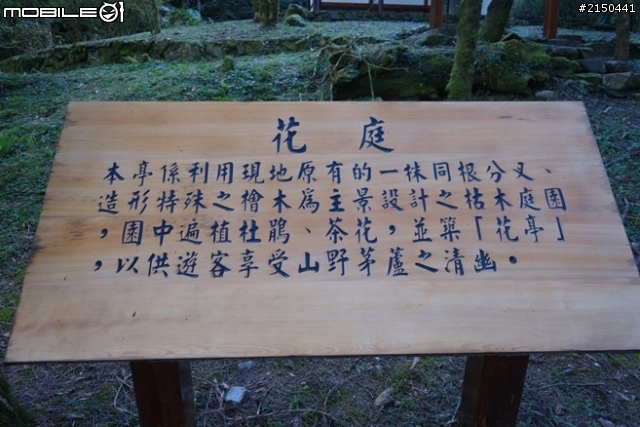 MOBILE01
#2150441
花庭
本亭係利用現地原有的一株同根分叉、
造形特殊之檜木為主景設計之枯木庭園
，園中遍植杜鵑、茶花，並築「花亭」
，以供遊客享受山野茅蘆之清幽。